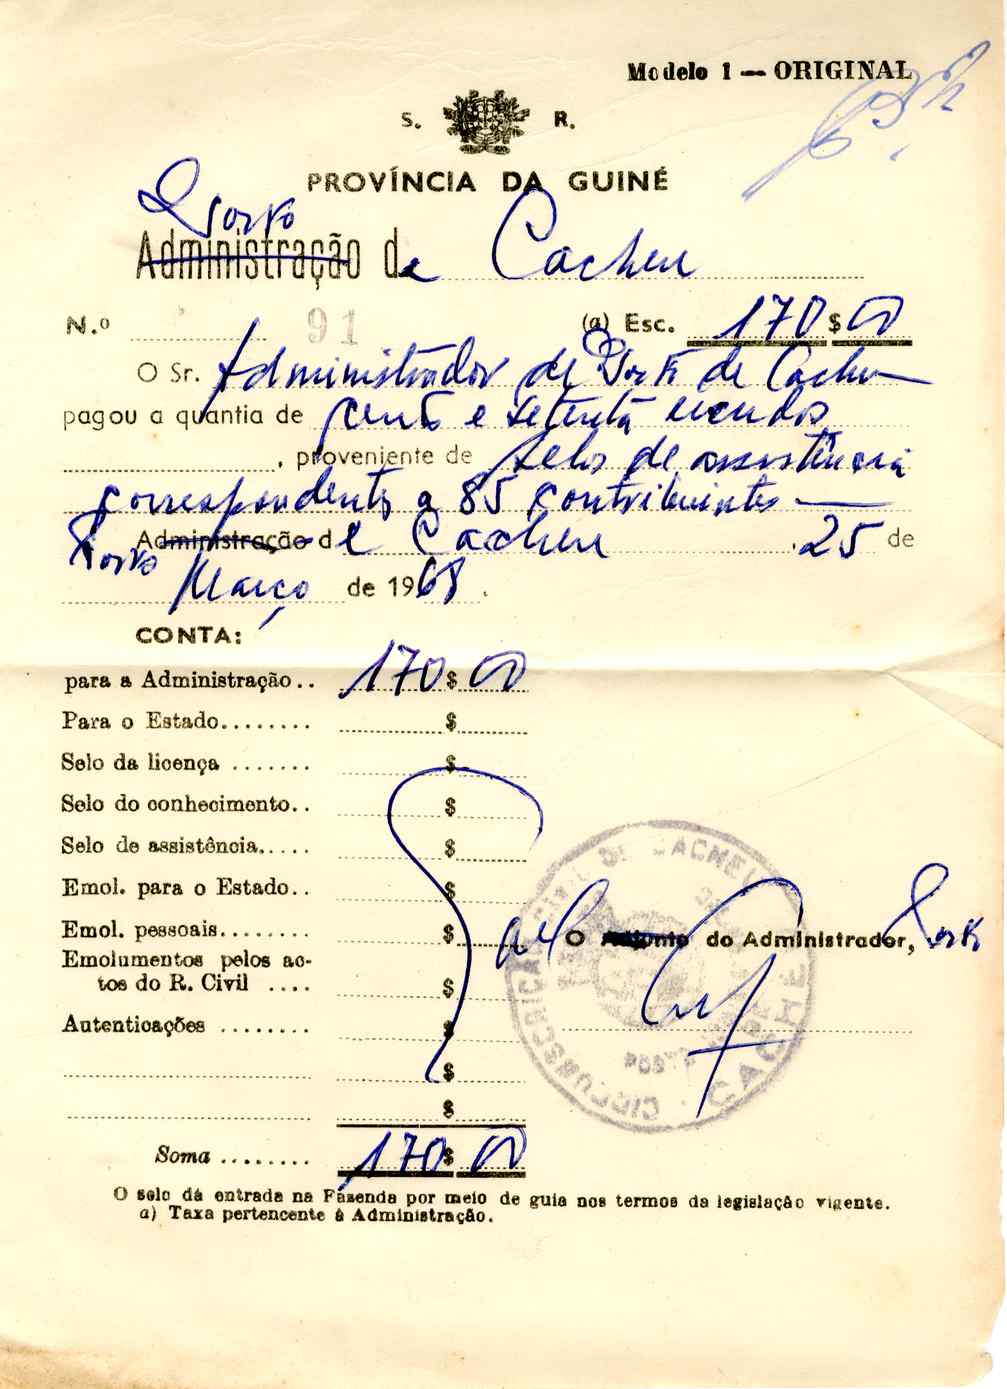 Modelo 1 — ORIGINAL
S. R.
PROVÍNCIA DA GUINÉ
Posto
Administração de Cacheu
N.º 91 (a) Esc. 170$00
O Sr. Administrador do Posto de Cacheu
pagou a quantia de cento e setenta escudos
, proveniente de selos de assistência
correspondentes a 85 contribuintes
Posto Administração de Cacheu, 25 de
Março de 1968.
CONTA:
para a Administração.. 170$00
Para o Estado........ $
Selo da licença ....... $
Selo do conhecimento.. $
Selo de assistência..... $
Emol. para o Estado.. $
Emol. pessoais........ $
O Adjunto do Administrador, Posto
Emolumentos pelos ac-
tos do R. Civil .... $
Autenticações ........ $
$
$
Soma ........ 170$00
CIRCUNSCRICAO CIVIL DE CACHEU
POSTO
CACHEU
O selo dá entrada na Fazenda por meio de guia nos termos da legislação vigente.
a) Taxa pertencente à Administração.